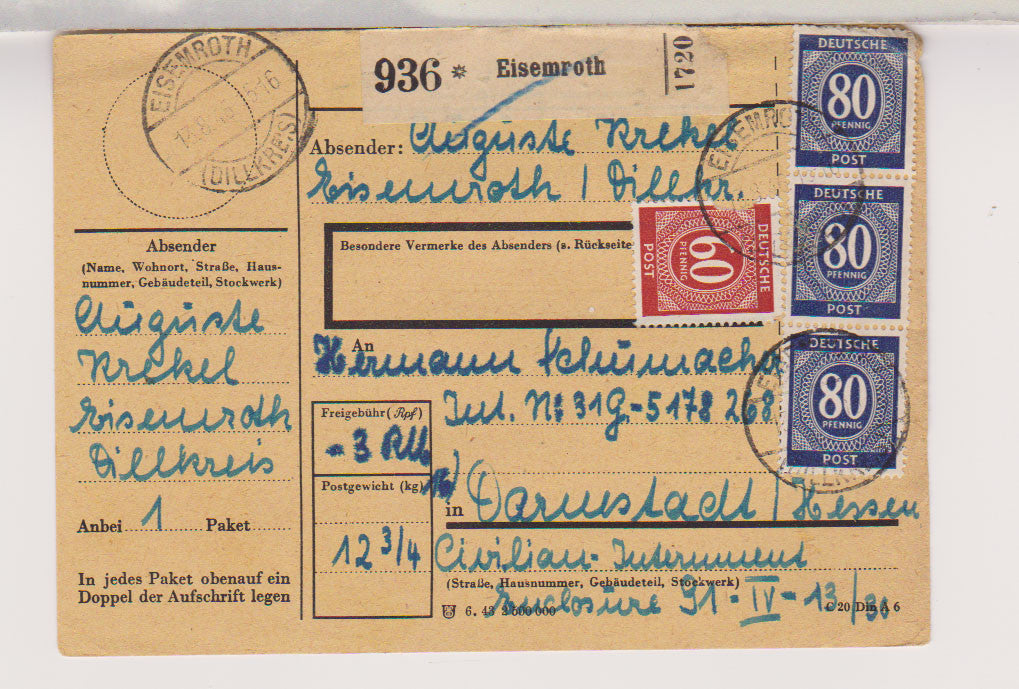 EISEMROTH
(DILLKREIS)
936 * Eisemroth
1720
Absender: Auguste Krekel
Eisemroth / Dillkr.
Besondere Vermerke des Absenders (s. Rückseite
DEUTSCHE
80
PFENNIG
POST
DEUTSCHE
80
PFENNIG
POST
DEUTSCHE
80
PFENNIG
POST
DEUTSCHE
60
PFENNIG
POST
Absender
(Name, Wohnort, Straße, Haus-
nummer, Gebäudeteil, Stockwerk)
Auguste
Krekel
Eisemroth
Dillkreis
Anbei 1 Paket
In jedes Paket obenauf ein
Doppel der Aufschrift legen
An
Hermann Schumache
Int. No: 31G-5178268
Freigebühr (Rpf)
- 3 RM
Postgewicht (kg)
12 3/4
in Darmstadt / Hessen
Civilian-Internment
(Straße, Hausnummer, Gebäudeteil, Stockwerk)
Enclosure 91-IV-13/30
6. 43 2 500 000
C 20 Din A 6